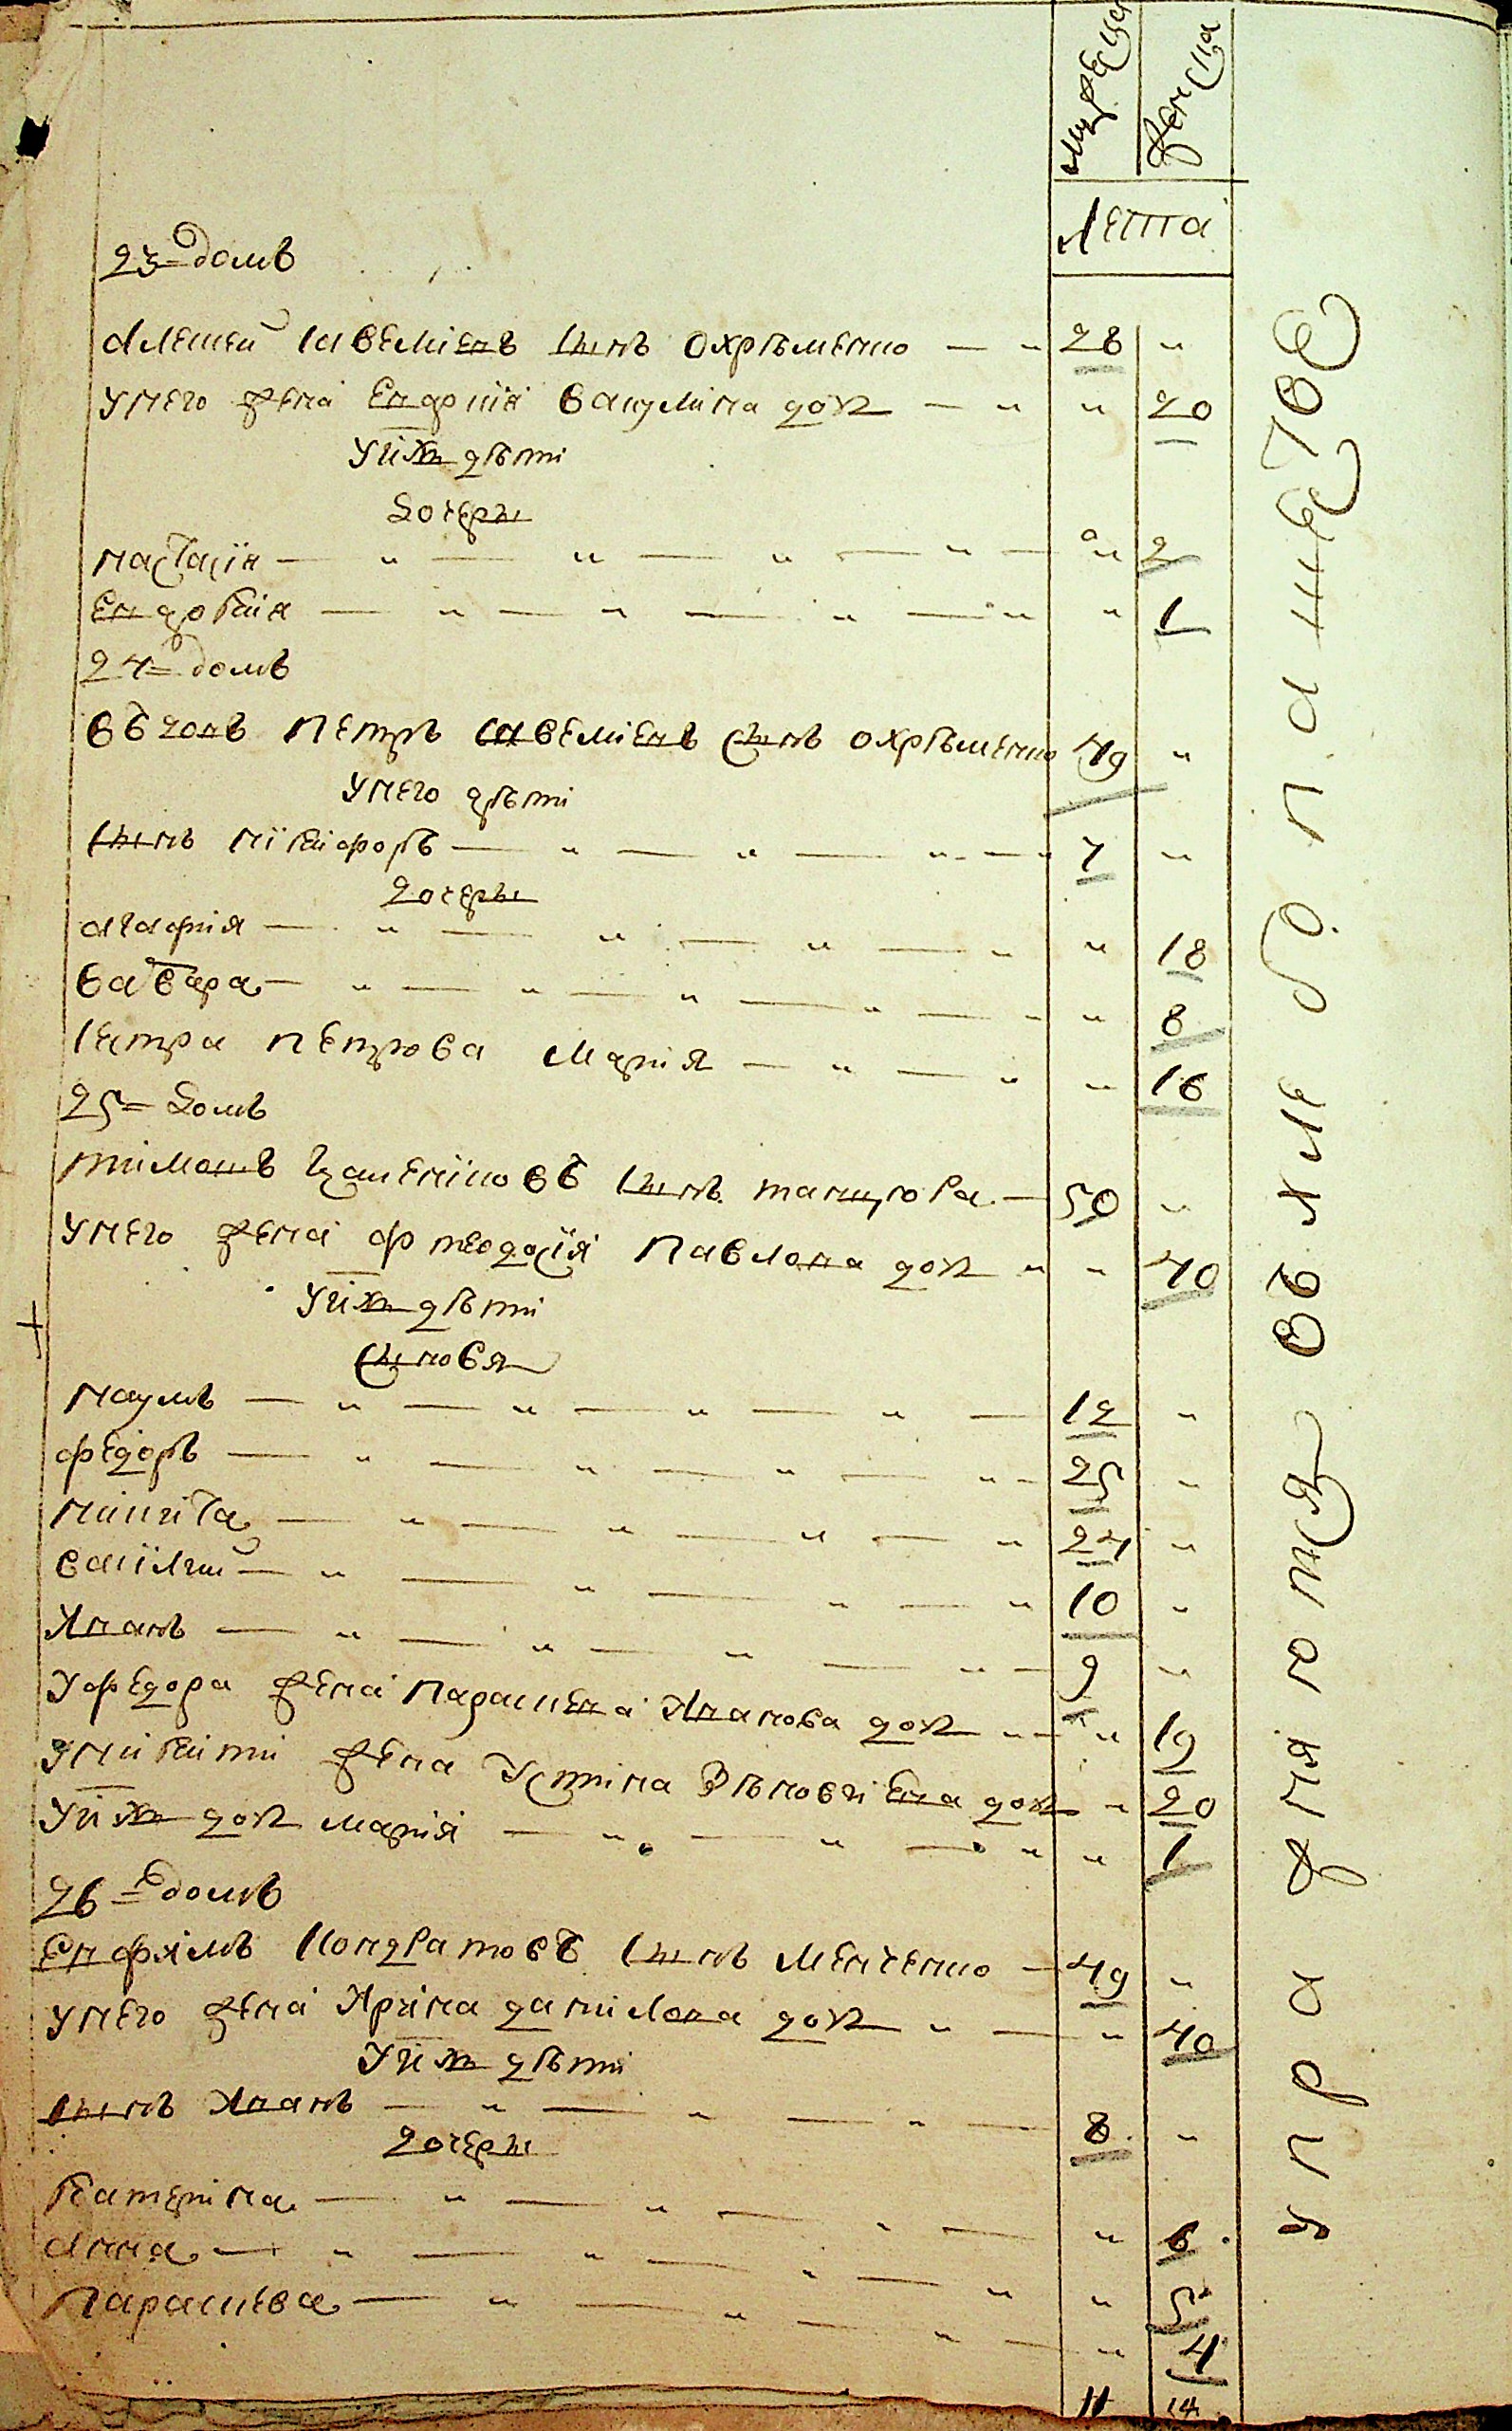 мужеска
женска
лета
23 = домъ
Алексей Савелиевъ сынъ Охрѣменко 28
У него жена Евдокия Вакулина доч 20
У них дѣти
Дочеры
Настасїя 2
Евдокия 1
24 = домъ
Вдовъ Петръ Савелиевъ сынъ Охрѣменко 49
У него дѣти
Сынъ Никифоръ 7
Дочеры
Агафия 18
Варвара 8
Сестра Петрова Мария 16
25 = Домъ
Тимошъ сынъ Танцюра 50
У него жена Фтеодосїя Павлова доч 40
У них дѣти
Сыновя
Наумъ 12
Федоръ 25
Никита 24
Василий 10
Иванъ 9
У Федора жена Параскева Иванова доч 19
У Никити жена Устина Зѣновиева доч 20
У них доч Мария 1
26 = домъ
Евфимъ Кондратовъ сынъ Менченко 49
У него жена Ирина Данилова доч 40
У них дѣти
Сынъ Иванъ 8
Дочеры
Катерина 6
Анна 5
Параскева 4
11 14